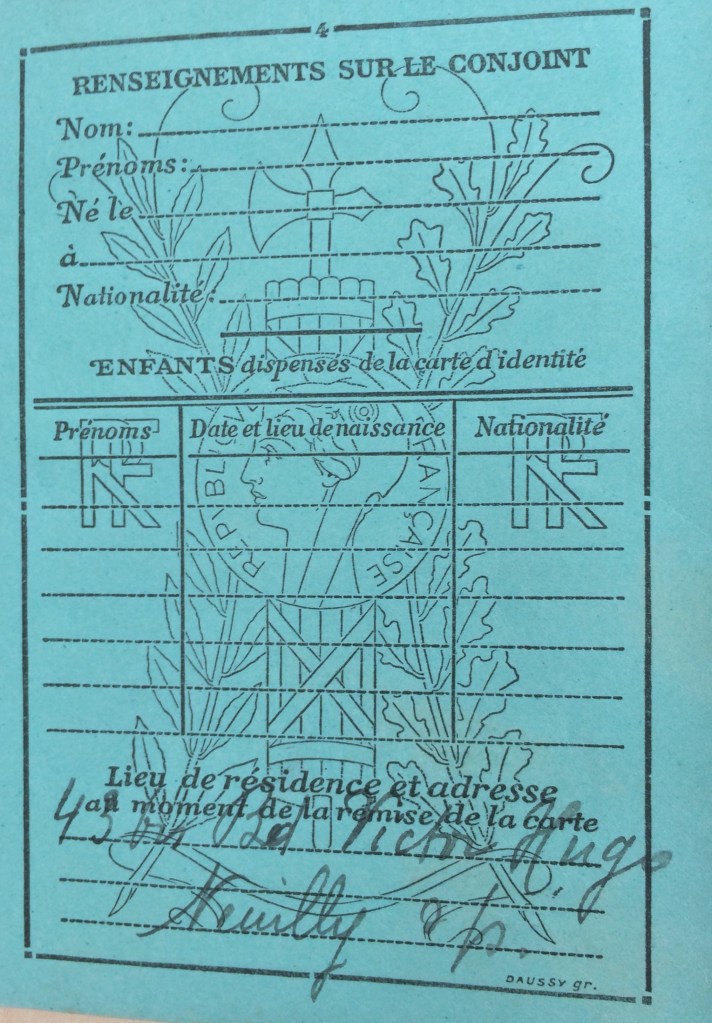 4
RENSEIGNEMENTS SUR LE CONJOINT
Nom:
Prénoms:
Né le
à
Nationalité:
ENFANTS dispensés de la carte d'identité
Prénoms Date et lieu de naissance Nationalité
RF RF
RÉPUBLIQUE FRANÇAISE
Lieu de résidence et adresse
au moment de la remise de la carte
43 bis Bd Victor Hugo
Neuilly s/s.
DAUSSY gr.